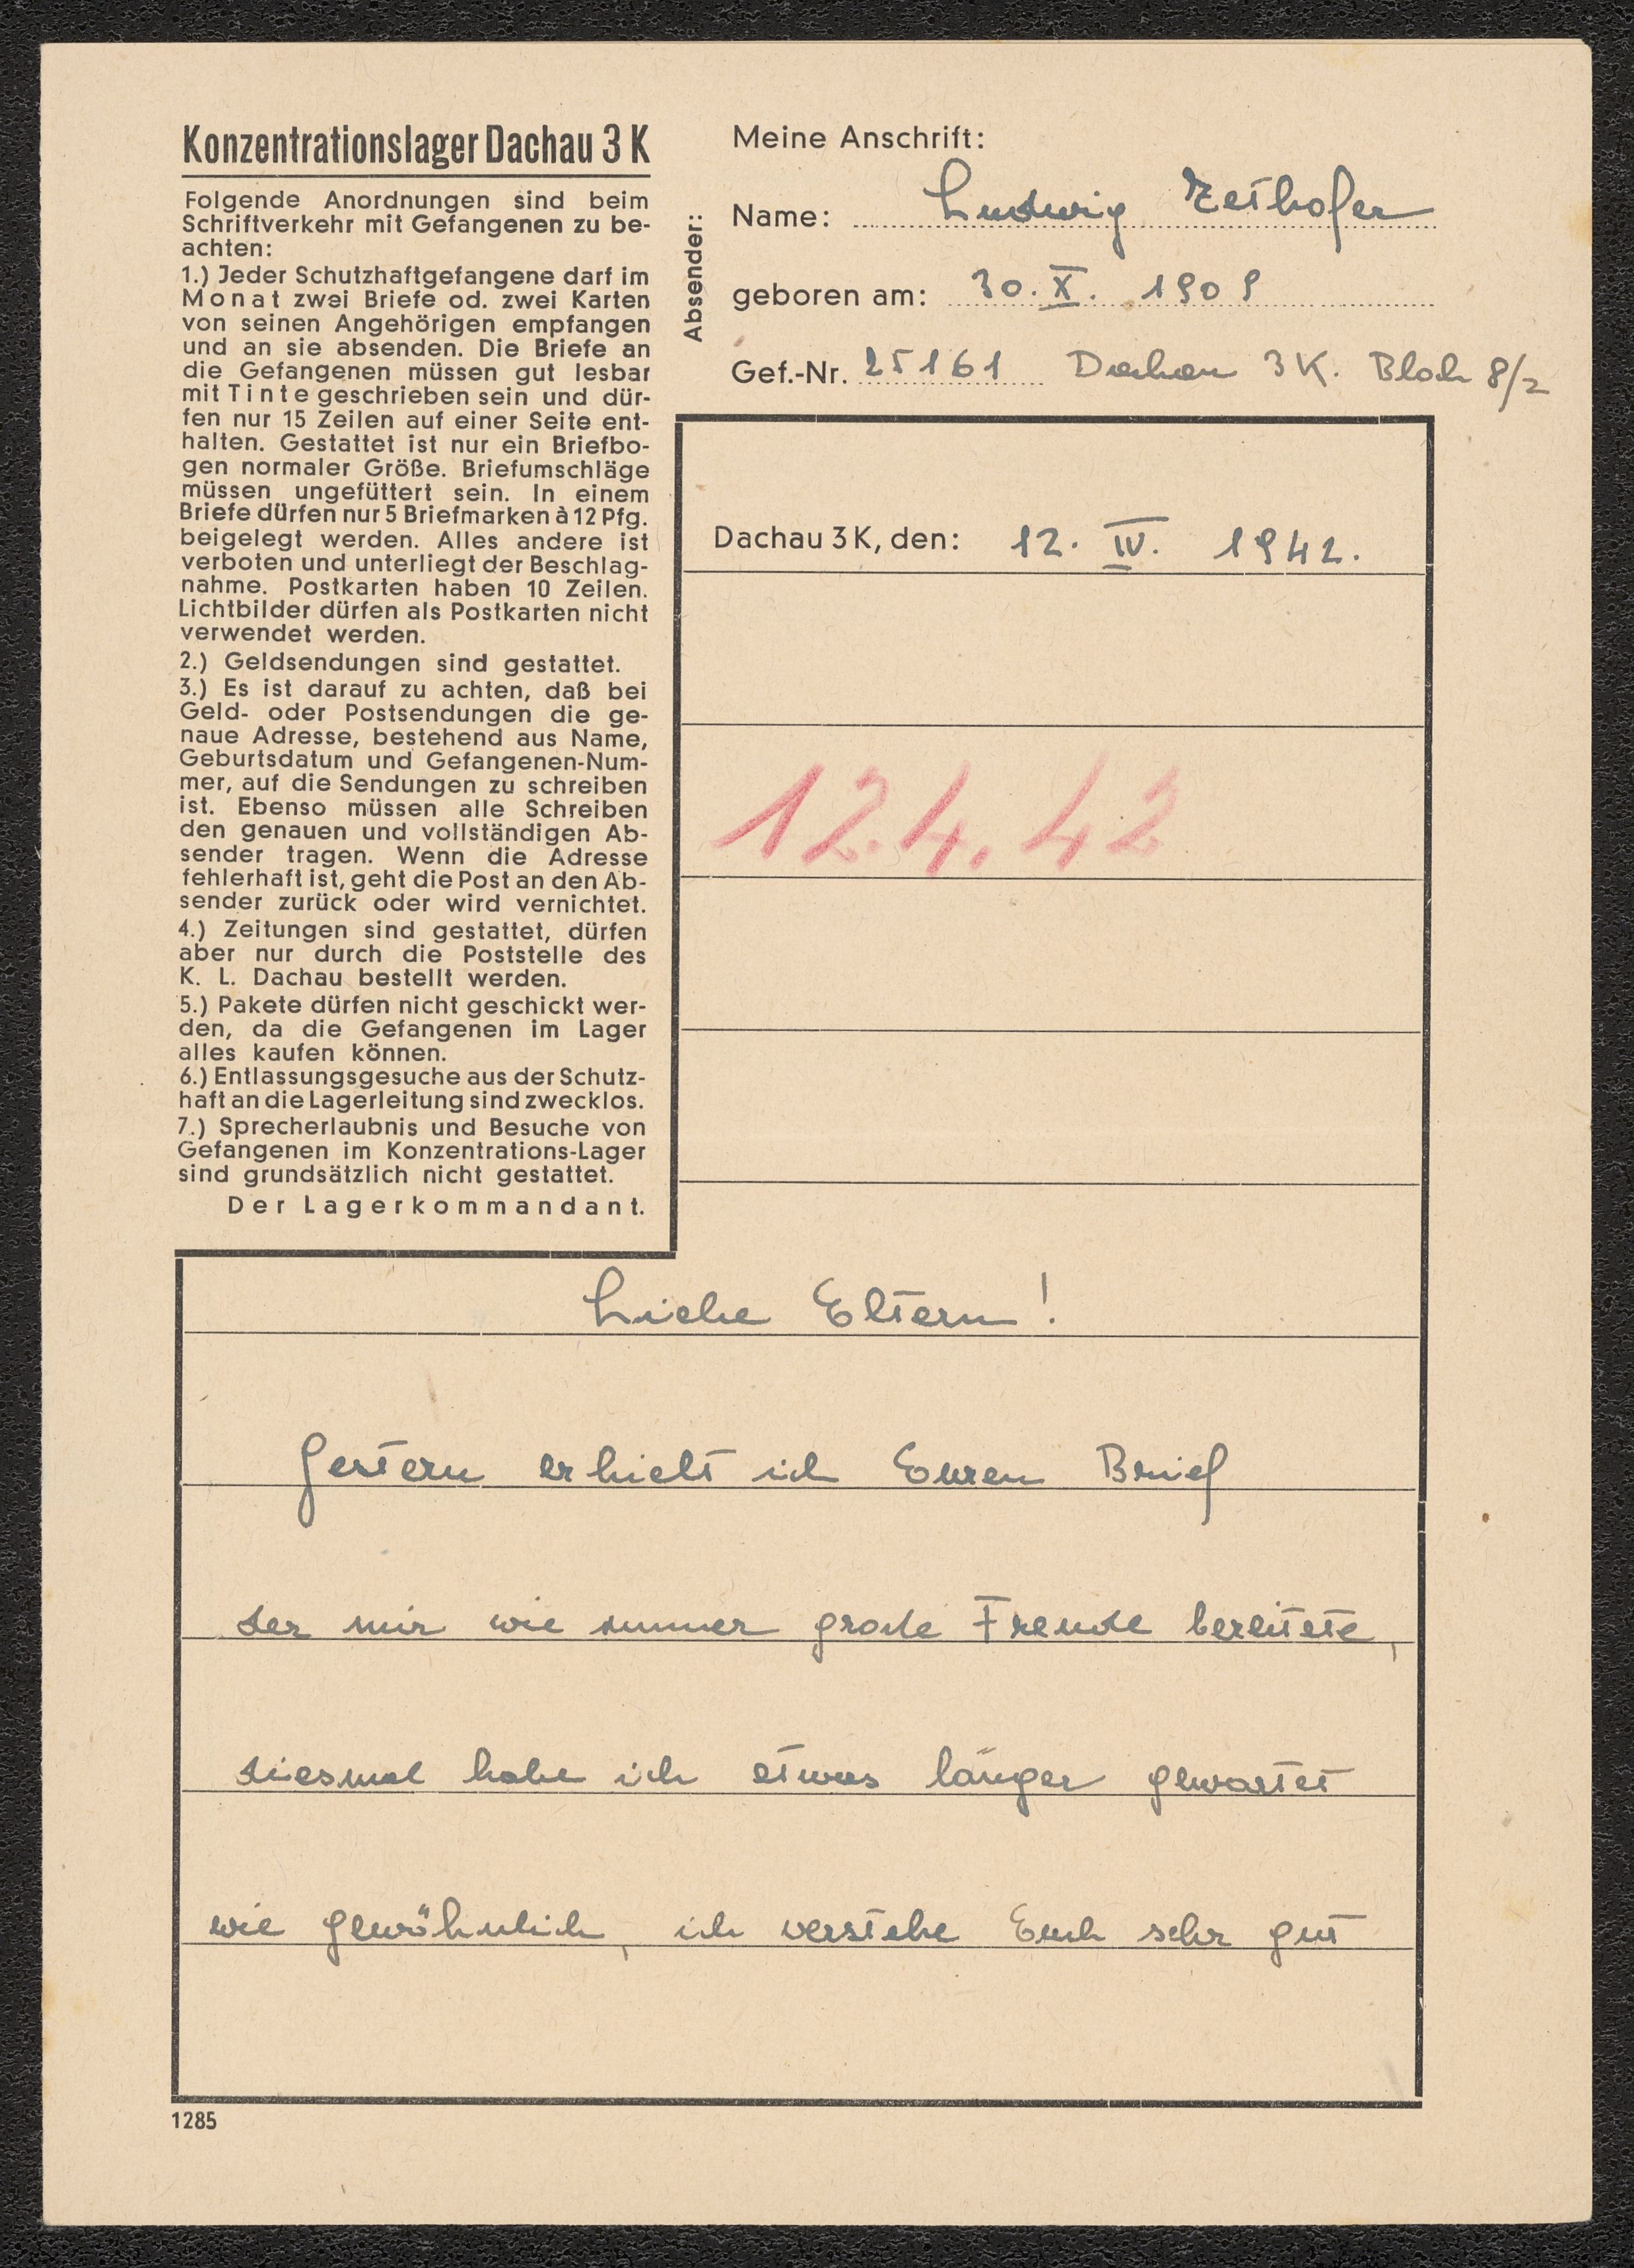 Konzentrationslager Dachau 3 K
Folgende Anordnungen sind beim
Schriftverkehr mit Gefangenen zu be-
achten:
1.) Jeder Schutzhaftgefangene darf im
Monat zwei Briefe od. zwei Karten
von seinen Angehörigen empfangen
und an sie absenden. Die Briefe an
die Gefangenen müssen gut lesbar
mit Tinte geschrieben sein und dür-
fen nur 15 Zeilen auf einer Seite ent-
halten. Gestattet ist nur ein Briefbo-
gen normaler Größe. Briefumschläge
müssen ungefüttert sein. In einem
Briefe dürfen nur 5 Briefmarken à 12 Pfg.
beigelegt werden. Alles andere ist
verboten und unterliegt der Beschlag-
nahme. Postkarten haben 10 Zeilen.
Lichtbilder dürfen als Postkarten nicht
verwendet werden.
2.) Geldsendungen sind gestattet.
3.) Es ist darauf zu achten, daß bei
Geld- oder Postsendungen die ge-
naue Adresse, bestehend aus Name,
Geburtsdatum und Gefangenen-Num-
mer, auf die Sendungen zu schreiben
ist. Ebenso müssen alle Schreiben
den genauen und vollständigen Ab-
sender tragen. Wenn die Adresse
fehlerhaft ist, geht die Post an den Ab-
sender zurück oder wird vernichtet.
4.) Zeitungen sind gestattet, dürfen
aber nur durch die Poststelle des
K. L. Dachau bestellt werden.
5.) Pakete dürfen nicht geschickt wer-
den, da die Gefangenen im Lager
alles kaufen können.
6.) Entlassungsgesuche aus der Schutz-
haft an die Lagerleitung sind zwecklos.
7.) Sprecherlaubnis und Besuche von
Gefangenen im Konzentrations-Lager
sind grundsätzlich nicht gestattet.
Der Lagerkommandant.
Absender::
Meine Anschrift:
Name: Ludwig Zeithofer
geboren am: 30. X. 1909
Gef.-Nr. 25161 Dachau 3 K. Block 8/2
Dachau 3 K, den: 12. IV. 1942.
12.4.42
Liebe Eltern!
Gestern erhielt ich Euren Brief
der mir wie immer große Freude bereitete,
diesmal habe ich etwas länger gewartet
wie gewöhnlich, ich verstehe Euch sehr gut
1285